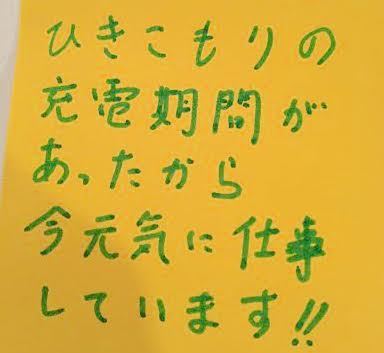 ひきこもりの
充電期間が
あったから
今元気に仕事
しています!!